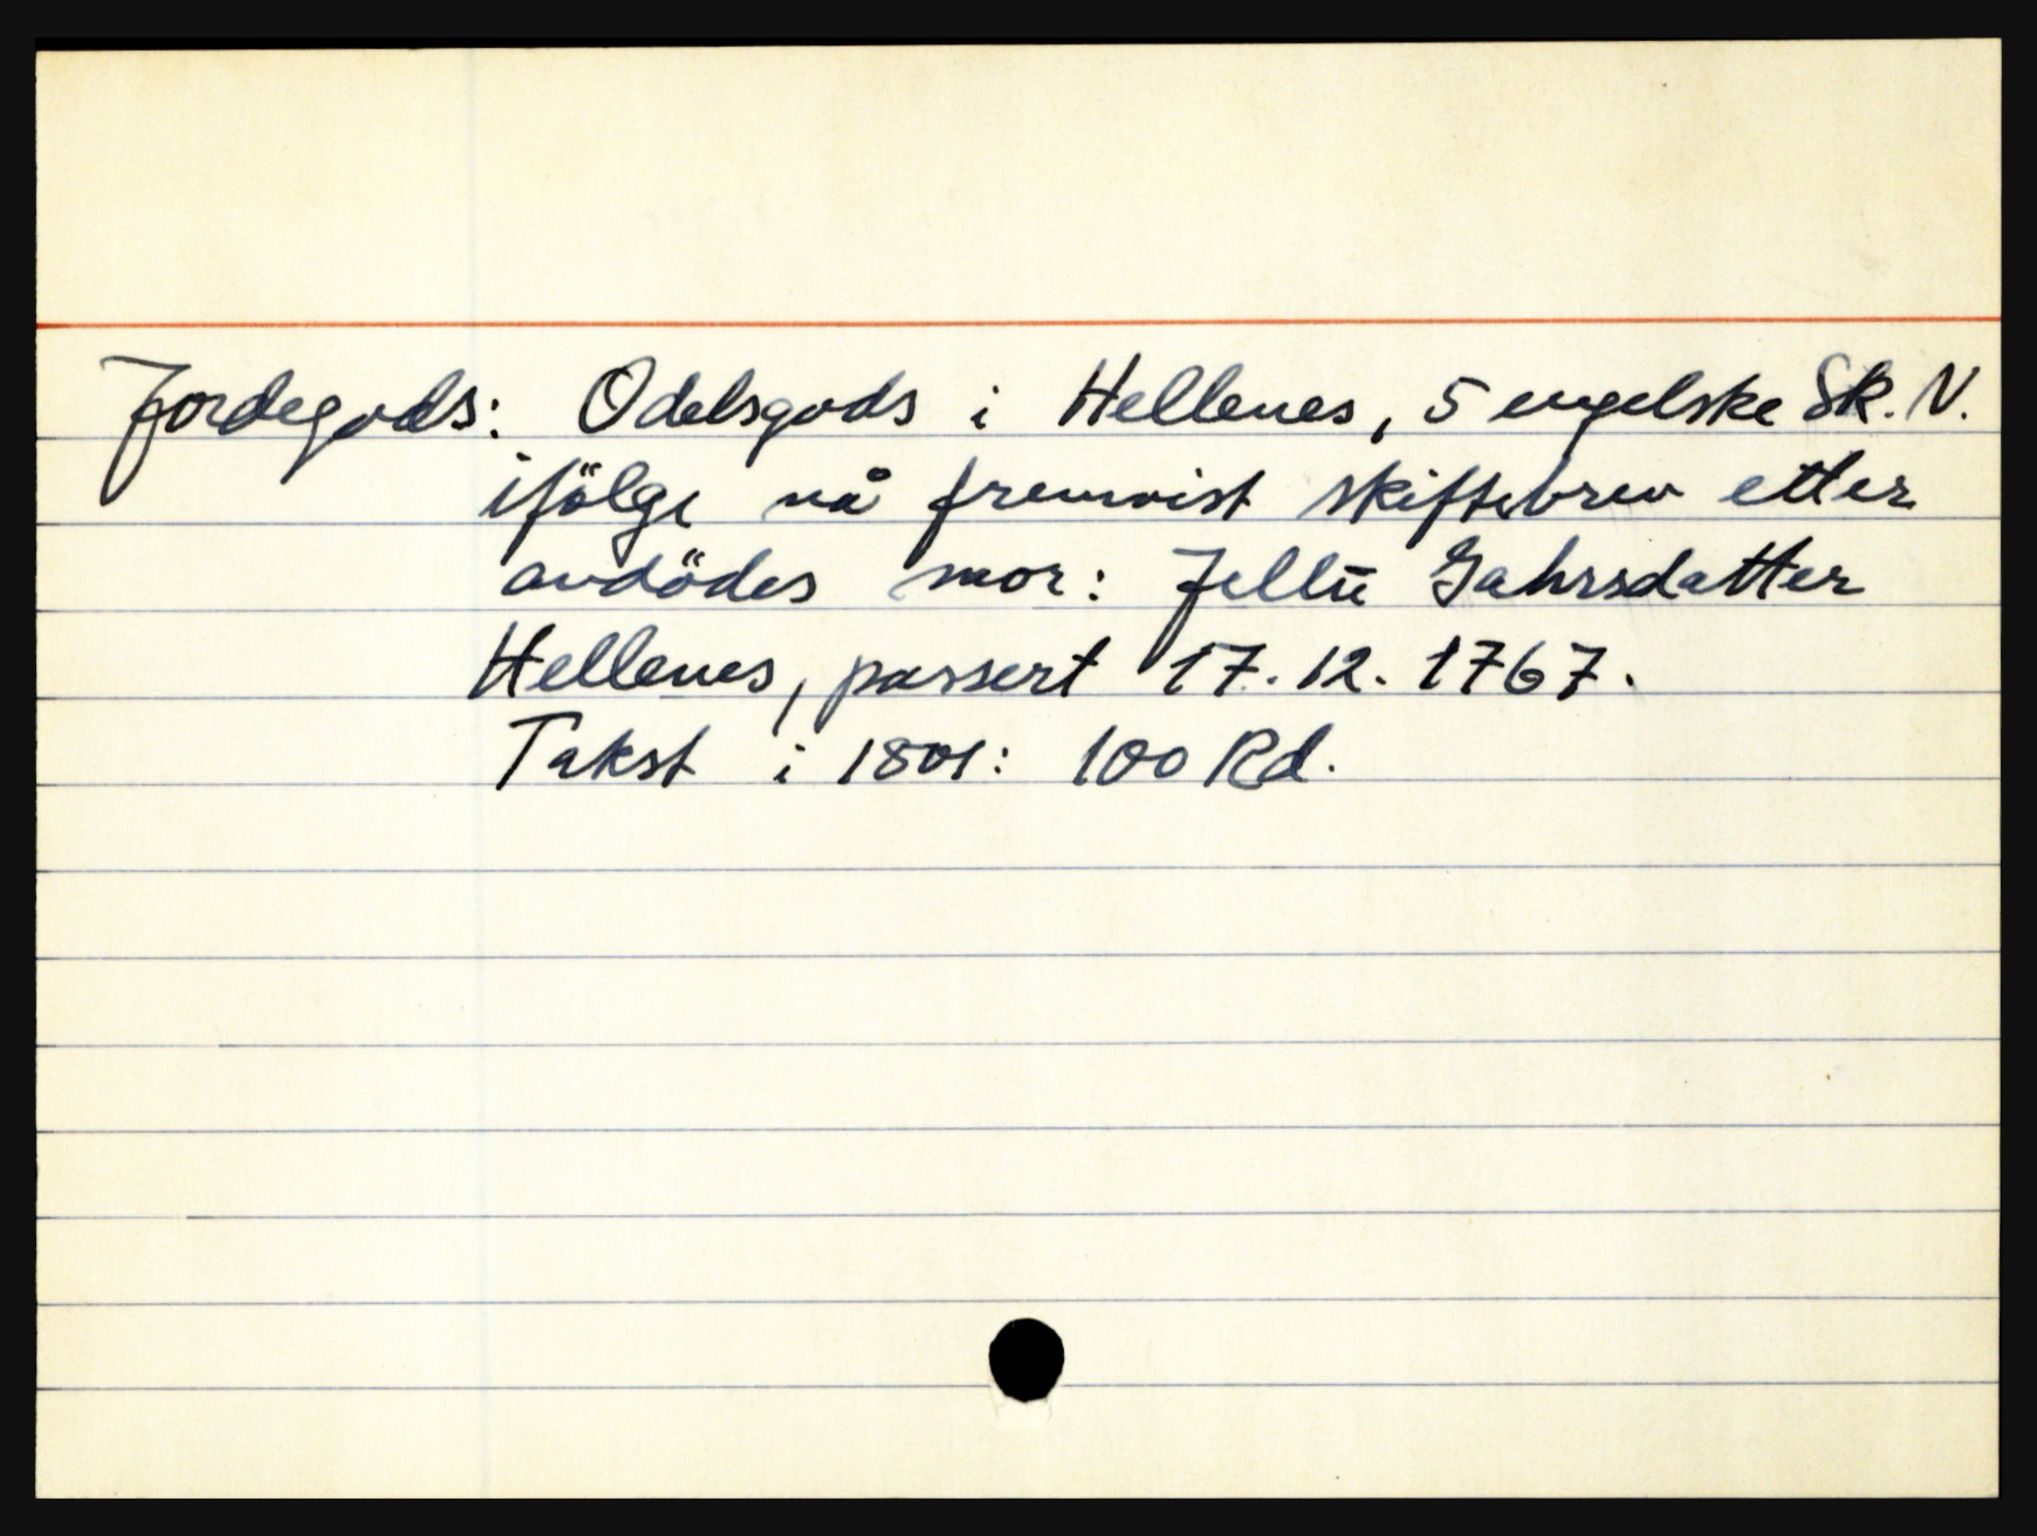 Jordegods: Odelsgods i Hellenes, 5 engelske Sk. N.
ifölge nå fremvist skiftebrev etter
avdödes mor: Jellu Gahrsdatter
Hellenes, passert 17.12.1767.
Takst i 1801: 100 Rd.